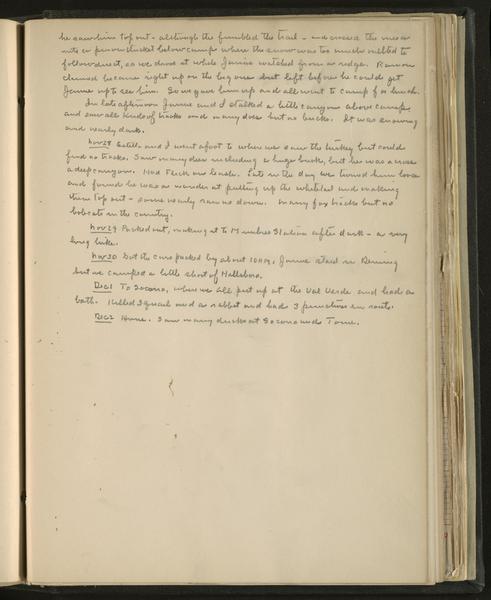 he saw him top out - although he fumbled the trail - and crossed the mesa
into a pinon thicket below camp where the snow was too much melted to
follow direct, so we drove it while Jamie watched from a ridge. Ramon
claimed he came right up on the big one but left before he could get
Jamie up to see him. So we gave him up and all went to camp for lunch.
In late afternoon Jamie and I stalked a little canyon above camp
and saw all kinds of tracks and many does but no bucks. It was snowing
and nearly dark.
Nov 28 and I went afoot to where we saw the turkey but could
find no tracks. Saw many deer including a huge buck, but he was across
a deep canyon. Had Flick on leash. Late in the day we turned him loose
and found he was a wonder at putting up the whitetail and making
them top out - some nearly ran us down. Many fox tracks but no
bobcats in the country.
Nov 29 Packed out, making it to Mimbres Station after dark - a very
long hike.
Nov 30 Got the cars packed by about 10 AM, Jamie stayed in Deming
but we camped a little short of Hillsboro.
Dec 1 To Socorro, where we all put up at the Val Verde and had a
bath. Killed 3 quail and a rabbit and had 3 punctures en route.
Dec 2 Home. Saw many ducks at Socorro and Tome.